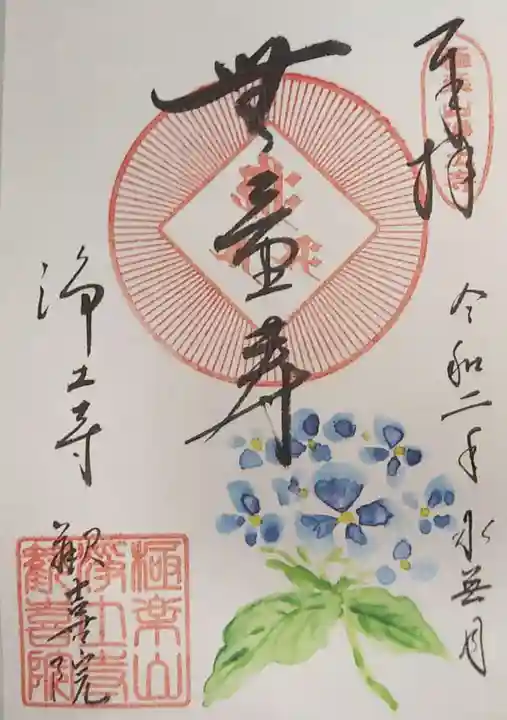 奉拝
令和二年水無月
無量寿
浄土寺
歓喜院
極楽山
浄土寺
歓喜院